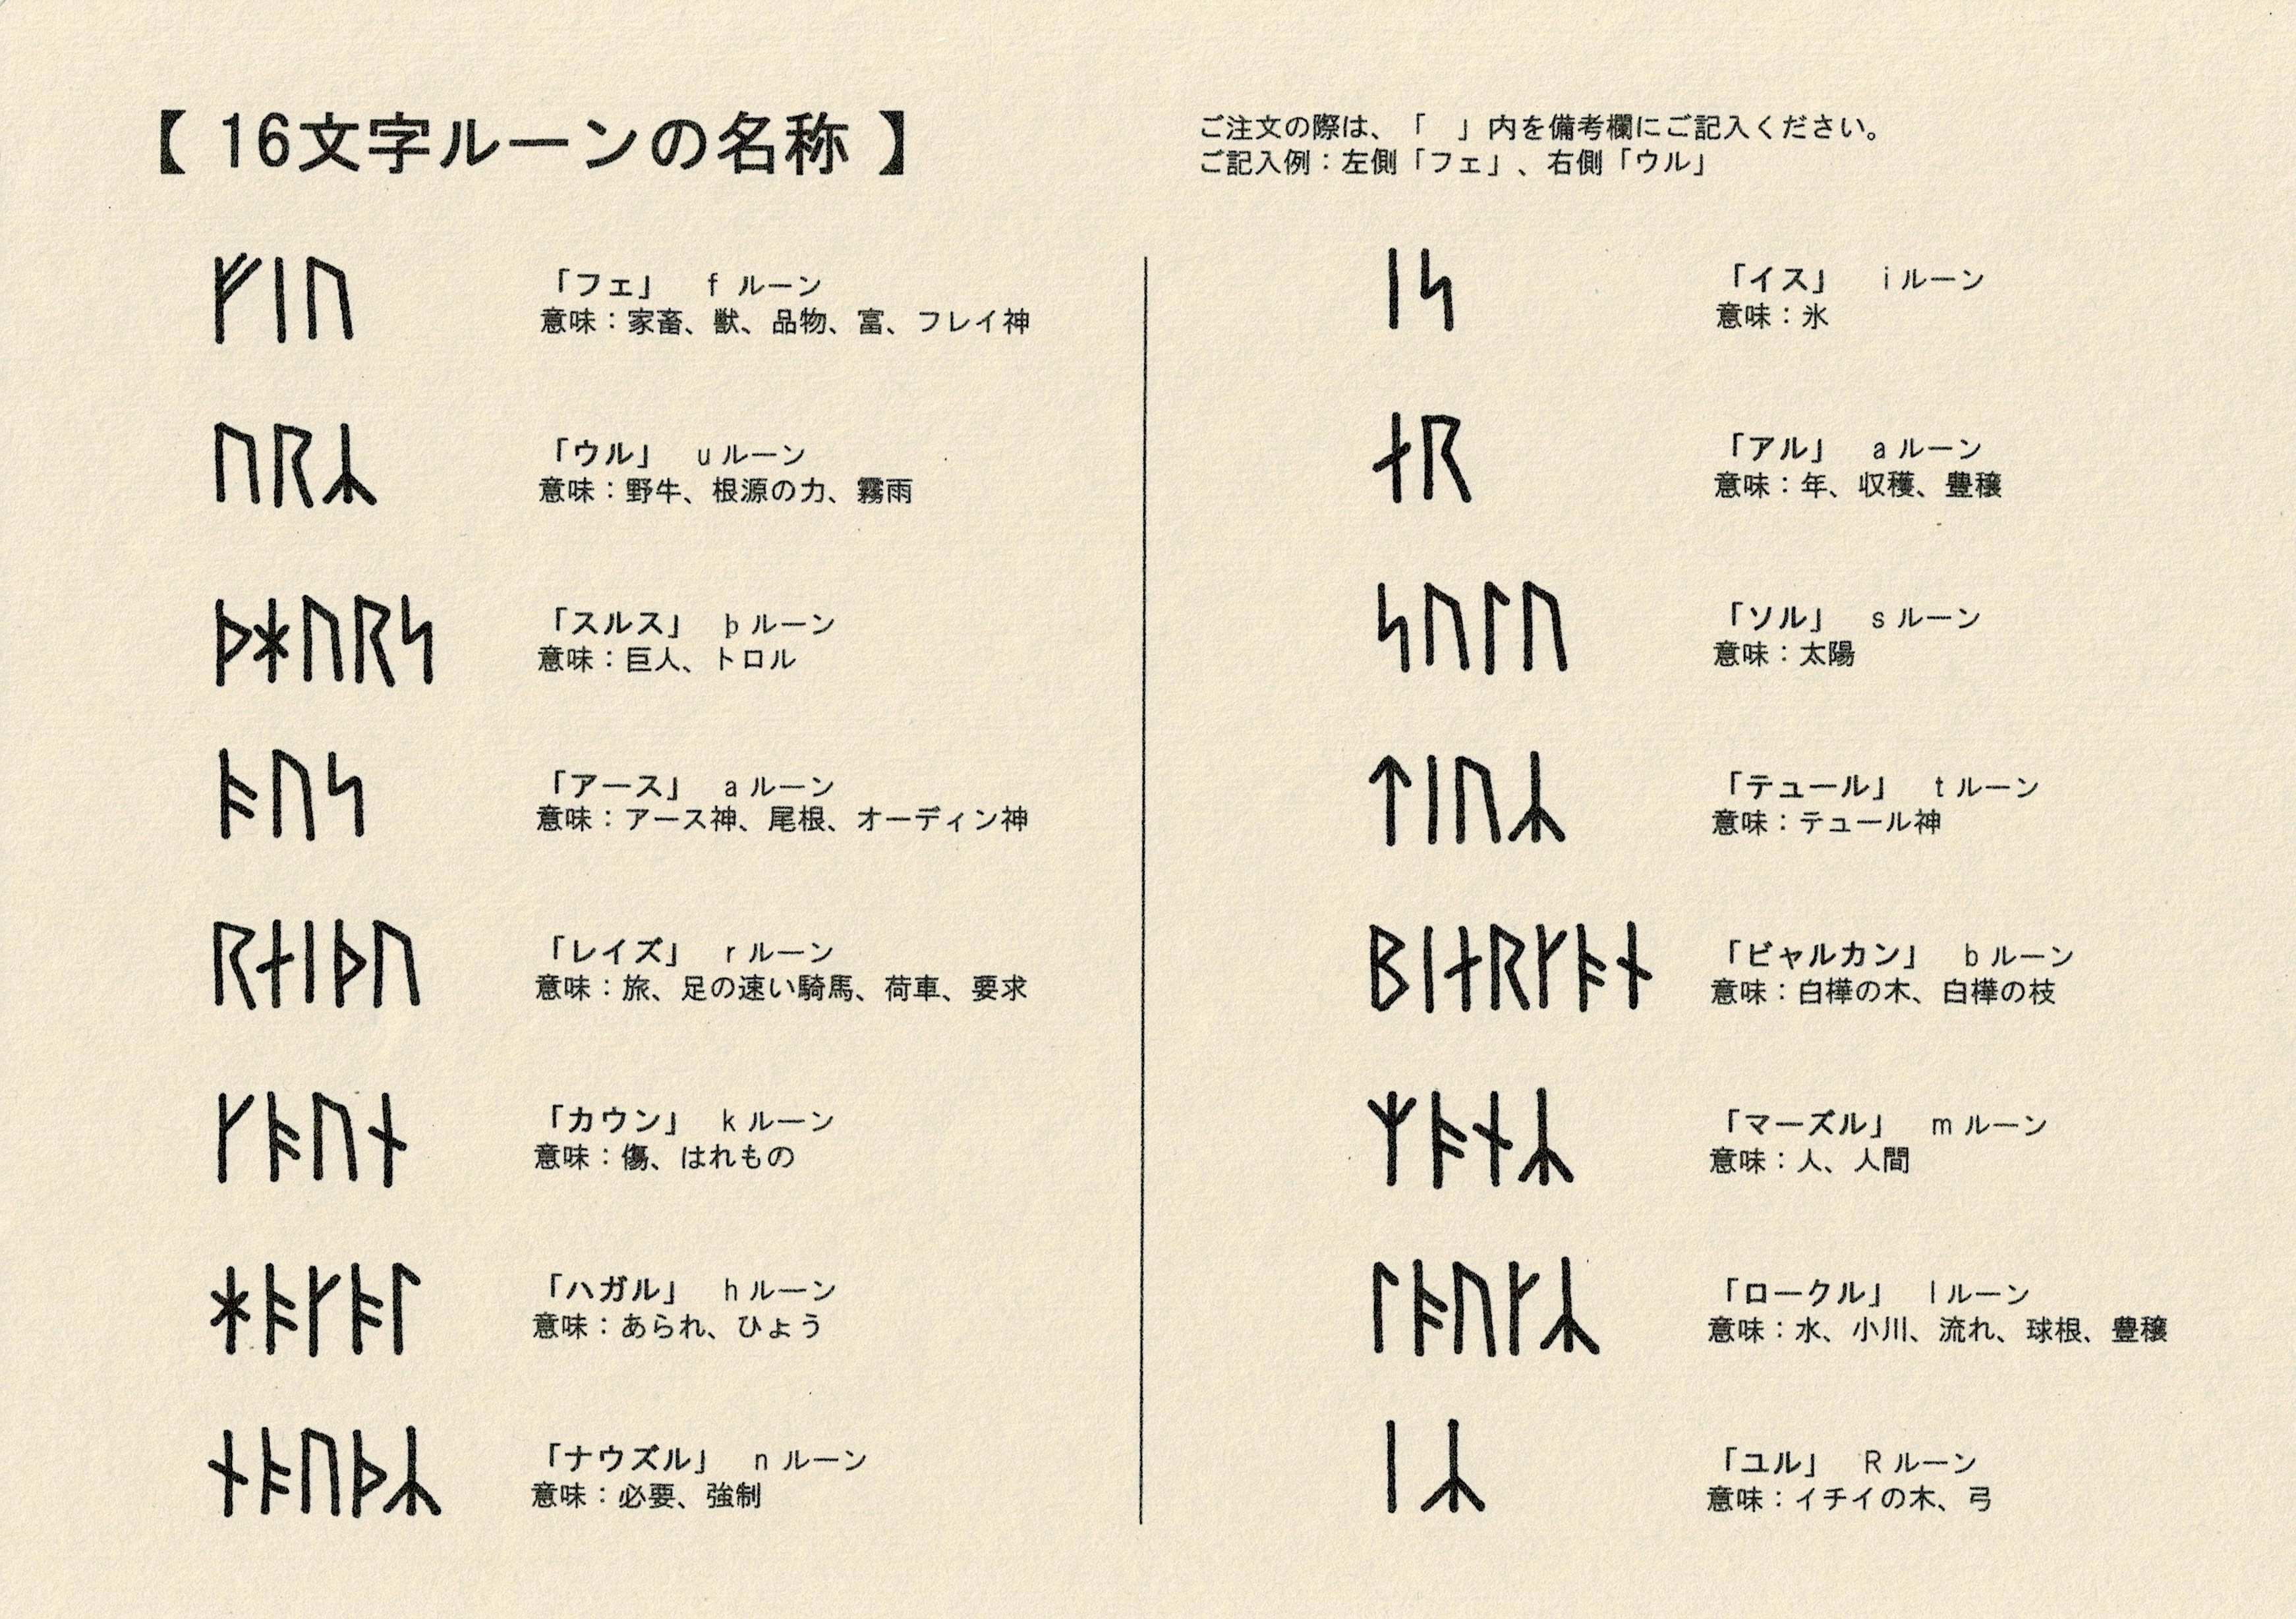 【 16文字ルーンの名称 】
ご注文の際は、「　」内を備考欄にご記入ください。
ご記入例：左側「フェ」、右側「ウル」
ᚠᛁᚢ
「フェ」　f ルーン
意味：家畜、獣、品物、富、フレイ神
ᚢᚱᛦ
「ウル」　u ルーン
意味：野牛、根源の力、霧雨
ᚦᚼᚢᚱᛋ
「スルス」　þ ルーン
意味：巨人、トロル
ᚬᚢᛋ
「アース」　a ルーン
意味：アース神、尾根、オーディン神
ᚱᛅᛁᚦᚢ
「レイズ」　r ルーン
意味：旅、足の速い騎馬、荷車、要求
ᚴᚬᚢᚾ
「カウン」　k ルーン
意味：傷、はれもの
ᚼᚬᚴᚬᛚ
「ハガル」　h ルーン
意味：あられ、ひょう
ᚾᚬᚢᚦᛦ
「ナウズル」　n ルーン
意味：必要、強制
ᛁᛋ
「イス」　i ルーン
意味：氷
ᛅᚱ
「アル」　a ルーン
意味：年、収穫、豊穣
ᛋᚢᛚᚢ
「ソル」　s ルーン
意味：太陽
ᛏᛁᚢᛦ
「テュール」　t ルーン
意味：テュール神
ᛒᛁᛅᚱᚴᚬᚾ
「ビャルカン」　b ルーン
意味：白樺の木、白樺の枝
ᛘᚬᚾᛦ
「マーズル」　m ルーン
意味：人、人間
ᛚᚬᚢᚴᛦ
「ロークル」　l ルーン
意味：水、小川、流れ、球根、豊穣
ᛁᛦ
「ユル」　R ルーン
意味：イチイの木、弓